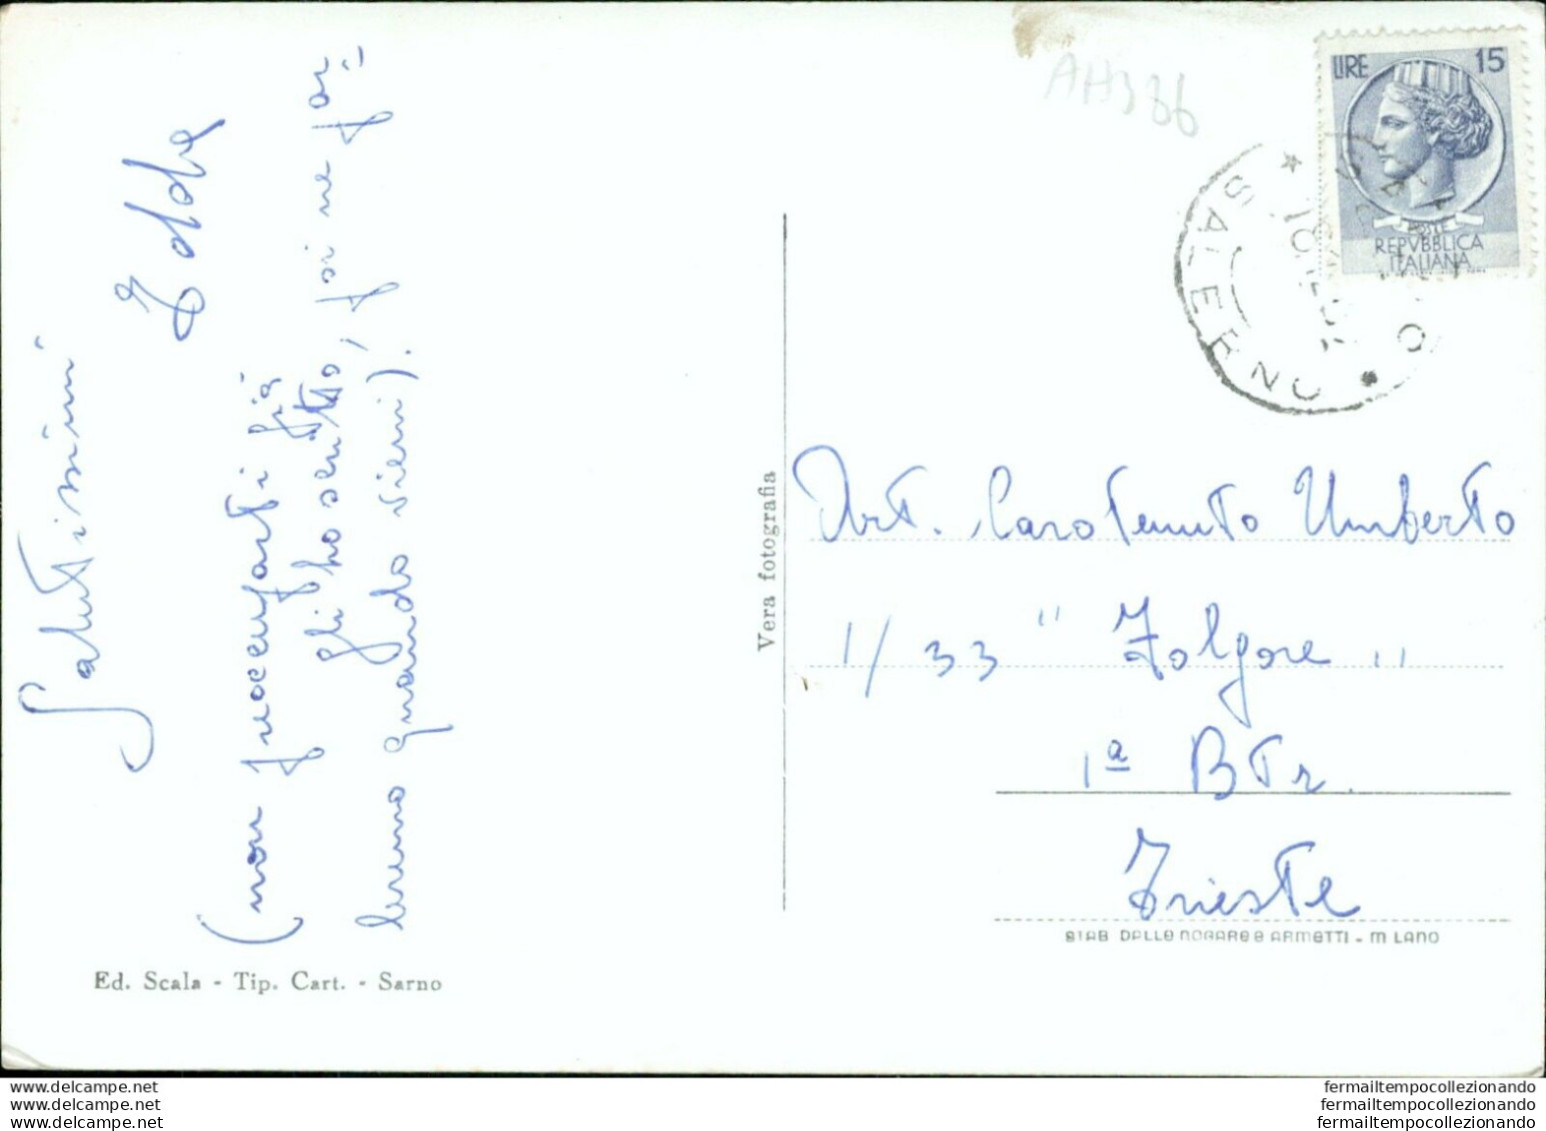 Salutissimi
Edda
(non preoccuparti già
gli ho scritto, poi ne par=
leremo quando vieni).
Ed. Scala - Tip. Cart. - Sarno
Vera fotografia
AH386
LIRE 15
POSTE
REPVBBLICA
ITALIANA
SALERNO
Art. Carotenuto Umberto
1/33 "Folgore"
1ª Btr.
Trieste
STAB DALLE NOGARE E ARMETTI - MILANO
delcampe.net
delcampe.net
delcampe.net
fermailtempocollezionando
fermailtempocollezionando
fermailtempocollezionando